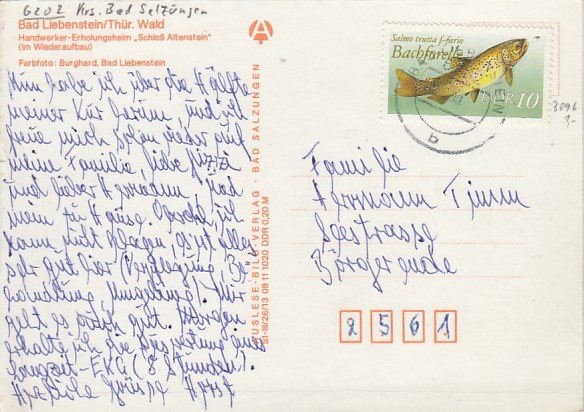 6202 Krs. Bad Salzungen
Bad Liebenstein/Thür. Wald
Handwerker-Erholungsheim „Schloß Altenstein"
(im Wiederaufbau)
Farbfoto: Burghard, Bad Liebenstein
Nun habe ich über die Hälfte
meiner Kur herum, und ich
freue mich schon wieder auf
meine Familie, liebe
und lieber Hermann und
mein zu Hause. Obwohl, ich
kann nicht klagen, es ist alles
sehr gut hier (Verpflegung, Be-
handlung, Umgebung). Mir
geht es auch gut. Morgen
erhalte ich die Auswertung eines
Langzeit-EKG (8 Stunden).
Herzliche Grüsse Horst
AUSLESE-BILD-VERLAG · BAD SALZUNGEN
SI-III/26/13 09 11 1020 DDR 0,20 M
Salmo trutta f. fario
Bachforelle
DDR 10
3096
Familie
Hermann Timm
Seestrasse
Börgerende
2561